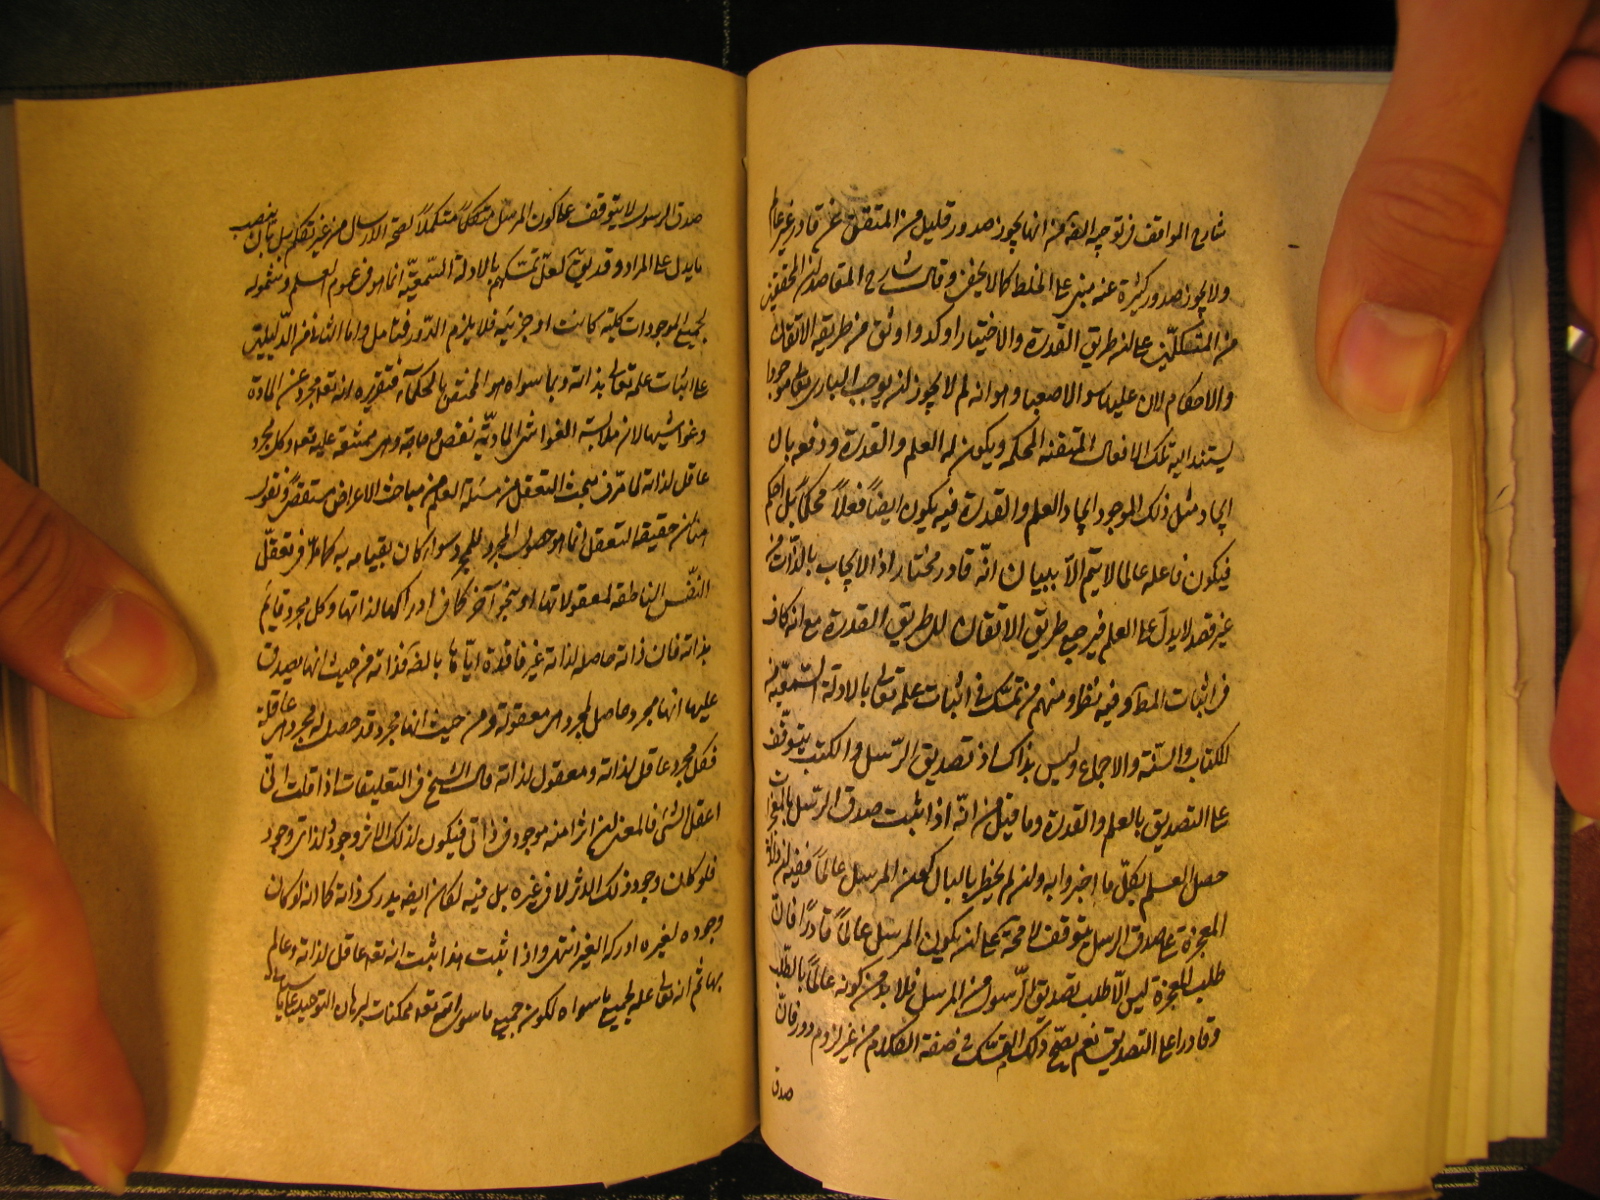 شارح المواقف في توجيه القه من انها يجوز صدور قليل من المتقن عن قادر غير عالم
ولا يجوز صدور كثيرة عنه مبنى على الغلط كما لا يخفى وقال شارح المقاصد ان المحققين
من المتكلمين على ان طريق القدرة والاختيار اوكد واوثق من طريقه الاتقان
والاحكام لان عليها سوالا صعبا وهو انه لم لا يجوز ان يوجب البارى تعالى موجودا
يستند اليه تلك الافعال المتقنة المحكمه ويكون له العلم والقدرة ودفعه بان
ايجاد مثل ذلك الموجود ايجاد العلم والقدرة فيه يكون ايضاً فعلاً محكماً بل احكم
فيكون فاعله عالما لا يتم الّا ببيان انّه قادر مختار اذ الايجاب بالذّات من
غير قصد لا يدلّ على العلم فيرجع طريق الاتقان الى طريق القدرة مع انه كاف
في اثبات المط وفيه نظر ومنهم من تمسّك في اثبات علمه تعالى بالادلة السّمعيّة من
الكتاب والسّنّة والاجماع وليس بذاك اذ تصديق الرّسل والكتب يتوقّف
على التصديق بالعلم والقدرة وما قيل من انّه اذا ثبت صدق الرّسل بالمعجزات
حصل العلم بكلّ ما اخبروا به وان لم يخطر بالبال كون المرسل عالماً ففيه ان دلالة
المعجزة على صدق الرسل يتوقف لا محة على ان يكون المرسل عالماً قادراً فانّ
طلب المعجزة ليس الّا طلب تصديق الرّسول من المرسل فلا بد من كونه عالماً بالطّلب
وقادرا على التصديق نعم يصحّ ذلك التمسّك في صفة الكلام من غير لزوم دور فانّ
صدق
صدق الرسول لا يتوقف على كون المرسل متكلماً لصحّة الارسال من غير تكلم بل بان ينصب
ما يدل على المراد وقد يق لعلّ تمسّكهم بالادلة السّمعيّة انما هو في عموم العلم وشموله
لجميع الموجودات كلية كانت او جزئية فلا يلزم الدّور فتامل واما الثانى من الدّليلين
على اثبات علمه تعالى بذاته وبما سواه هو المختص بالحكماء فتقريره انه تعه مجرد عن المادة
وغواشيها لان ملابسة الغواشى الماديّة نقص وحاجة وهى ممتنعة عليه تعه وكل مجرد
عاقل لذاته لما مر في مبحث التعقل من مسئلة العلم من مباحث الاعراض مستقصى ونقول
هنا ان حقيقة التعقل انما هو حصول المجرد للمجرد سواء كان بقيامه به كما مرّ في تعقل
النّفس الناطقه لمعقولاتها او بنحو آخر كما في ادراكها لذاتها وكل مجرد قائم
بذاته فان ذاته حاصله لذاته غير فاقدة ايّاها بالضّرورة فذاته من حيث انها يصدق
عليها انها مجرد حاصل لمجرد هى معقولة ومن حيث انها مجرد قد حصل له مجرد هى عاقلة
فكل مجرد عاقل لذاته ومعقول لذاته قال الشّيخ في التعليقات اذا قلت انّى
اعقل الشئ فالمعنى ان اثرا منه موجود في ذاتى فيكون لذلك الاثر وجود ولذاتى وجود
فلو كان وجود ذلك الاثر لا في غيره بل فيه لكان ايضا يدرك ذاته كما انه لو كان
وجوده لغيره ادركه الغير انتهى واذا ثبت هذا ثبت انه تعه عاقل لذاته وعالم
بها ثم انه تعالى علة لجميع ما سواه لكونه جميع ما سواه تعه ممكنات لبرهان التوحيد